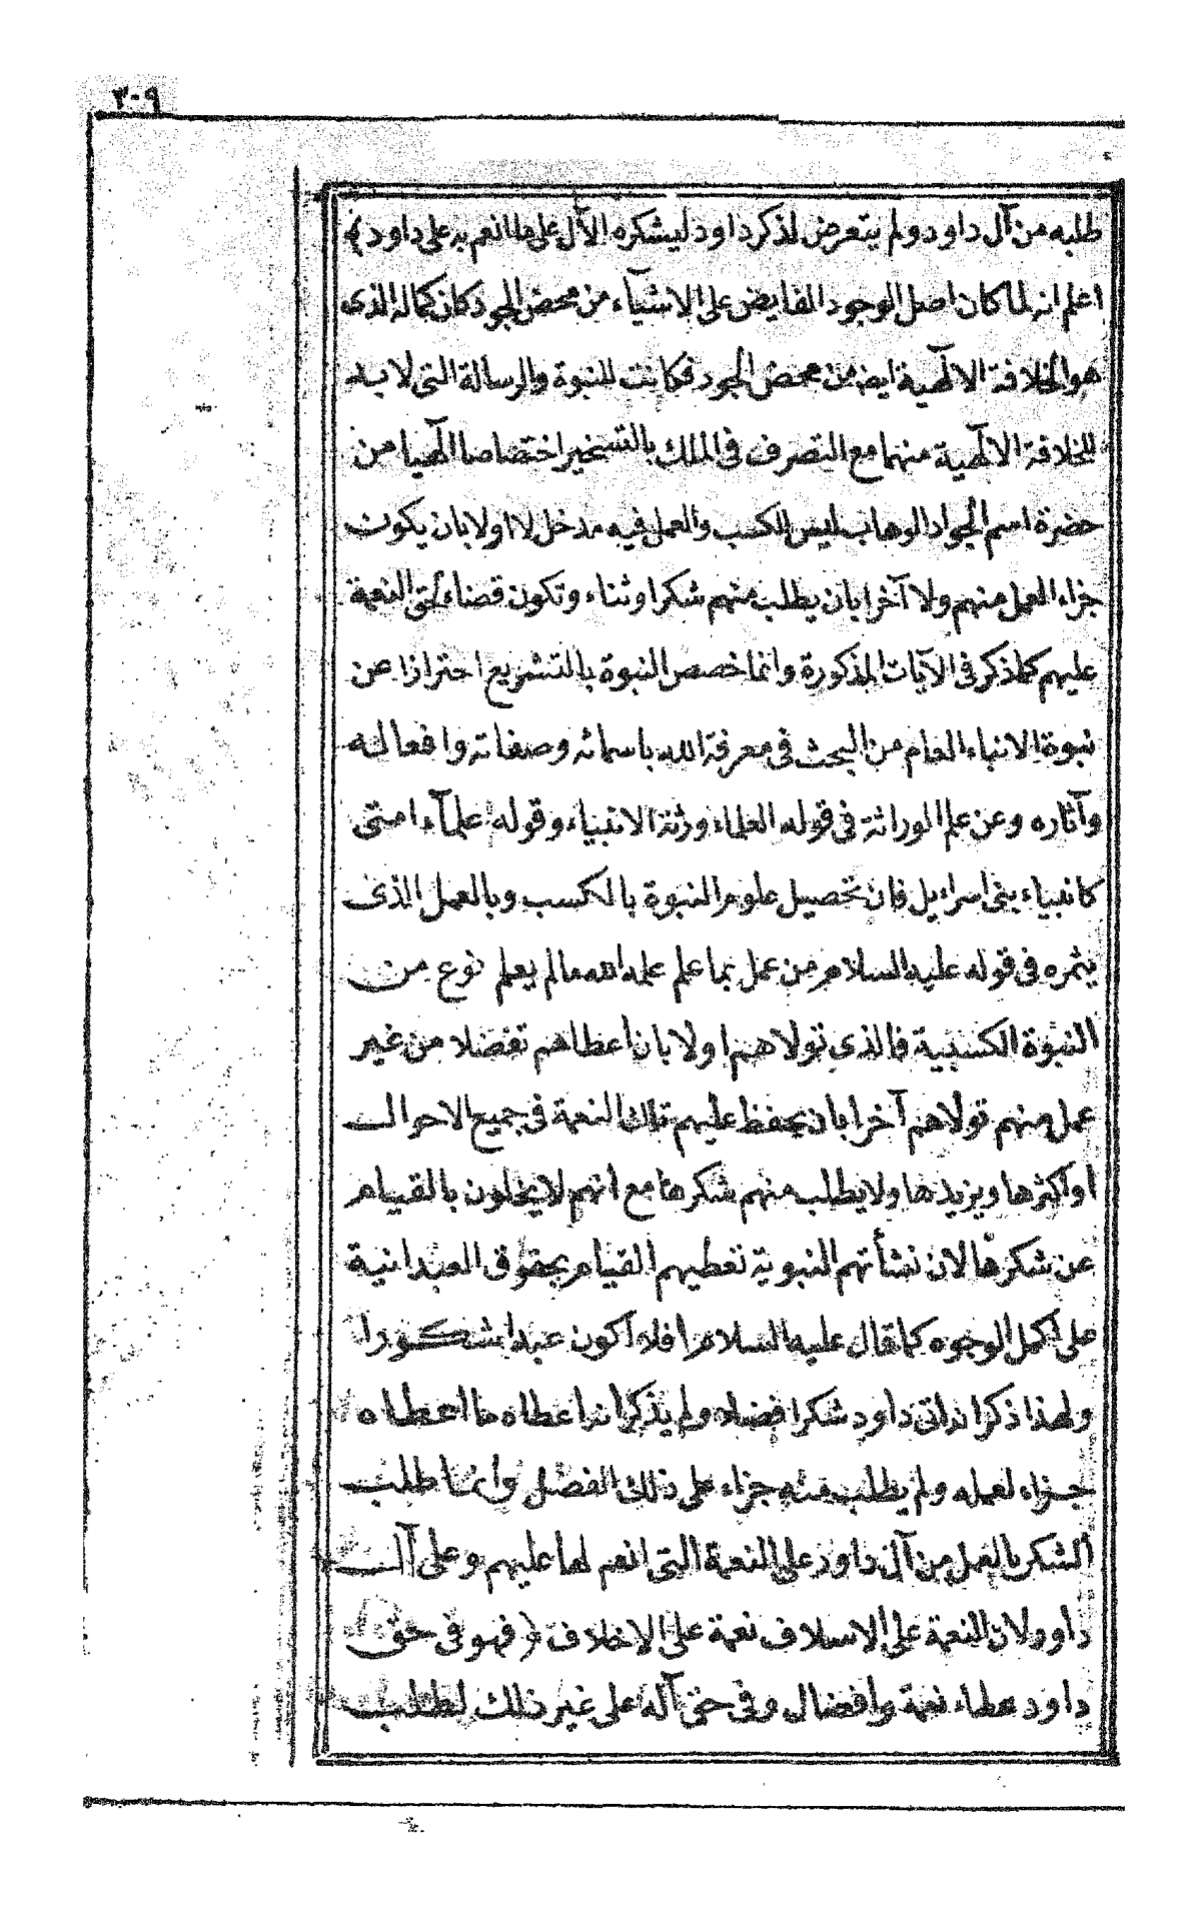 ٣٠٩
طلبه من آل داود ولم يتعرض لذكر داود ليشكره الآل على ما انعم به على داود ﴾
اعلم انه لما كان اصل الوجود الفايض على الاشيآء من محض الجود كان كماله الذى
هو الخلافة الالٓهية ايضا من محض الجود فكانت للنبوة والرسالة التى لابد
للخلافة الالٓهية منهما مع التصرف فى الملك بالتسخير اختصاصا الٓهيا من
حضرة اسم الجواد الوهاب ليس للكسب والعمل فيه مدخل لا اولا بان يكون
جزاء العمل منهم ولا آخرا بان يطلب منهم شكرا وثناء وتكون قضاء لحق النعمة
عليهم كما ذكر فى الآيات المذكورة وانما خصص النبوة بالتشريع احترازا عن
نبوة الانباء العام من البحث فى معرفة الله باسمائه وصفاته وافعاله
وآثاره وعن علم الوراثة فى قوله العلماء ورثة الانبياء وقوله علمآء امتى
كانبياء بنى اسرايل فان تحصيل علوم النبوة بالكسب وبالعمل الذى
يثمره فى قوله عليه السلام من عمل بما علم علمه الله مالم يعلم نوع من
النبوة الكسبية فالذى تولاهم اولا بان اعطاهم تفضلا من غير
عمل منهم تولاهم آخرا بان يحفظ عليهم تلك النعمة فى جميع الاحوال
او اكثرها ويزيدها ولا يطلب منهم شكرها مع انهم لا يخلون بالقيام
عن شكرها لان نشأتهم النبوية تعطيهم القيام بحقوق العبدانية
على اكمل الوجوه كما قال عليه السلام افلا اكون عبدا شكورا
ولهذا ذكر انه اتى داود شكرا فضلا ولم يذكر انه اعطاه ما اعطاه
جزاء لعمله ولم يطلب منه جزاء على ذلك الفضل وانما طلب
الشكر بالعمل من آل داود على النعمة التى انعم لها عليهم وعلى آل
داود ولان النعمة على الاسلاف نعمة على الاخلاف ﴿ فهو فى حق
داود عطاء نعمة وافضال وفى حق آله على غير ذلك لطلب